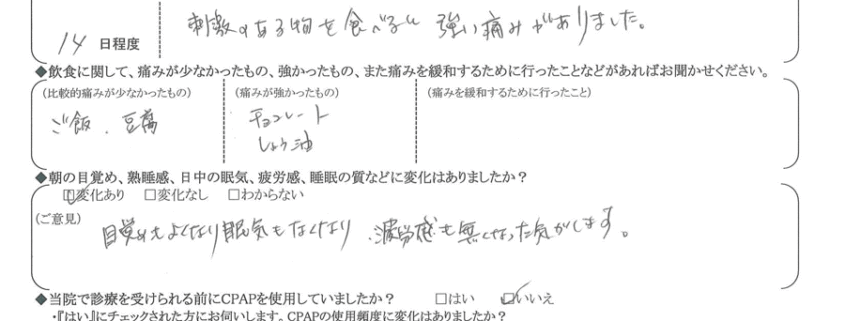 刺激のある物を食べると強い痛みがありました。
14 日程度
◆飲食に関して、痛みが少なかったもの、強かったもの、また痛みを緩和するために行ったことなどがあればお聞かせください。
（比較的痛みが少なかったもの） （痛みが強かったもの） （痛みを緩和するために行ったこと）
ご飯、豆腐 チョコレート
しょう油
◆朝の目覚め、熟睡感、日中の眠気、疲労感、睡眠の質などに変化はありましたか？
☑変化あり □変化なし □わからない
（ご意見） 目覚めもよくなり眠気もなくなり、疲労感も無くなった気がします。
◆当院で診療を受けられる前にCPAPを使用していましたか？ □はい ☑いいえ
・『はい』にチェックされた方にお伺いします。CPAPの使用頻度に変化はありましたか？